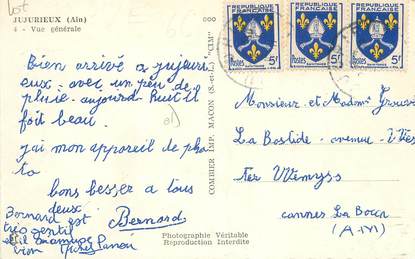 Lot
JUJURIEUX (Ain)
4 - Vue générale
Bien arrivé a jujuri
eux. avec un peu de
pluie. aujourd huit il
fait beau.
j'ai mon appareil de pho
to
bons besser a tous
deux.
Bernard
Bernard est
très gentil
et il
bien
COMBIER IMP. MACON (S.-et-L.) "CIM"
REPUBLIQUE FRANÇAISE
Postes 5F
REPUBLIQUE FRANÇAISE
Postes 5F
REPUBLIQUE FRANÇAISE
Postes 5F
Monsieur et Madame
La Bastide. avenue
Fer
Cannes La Bocca
(A-M)
Photographie Véritable
Reproduction Interdite